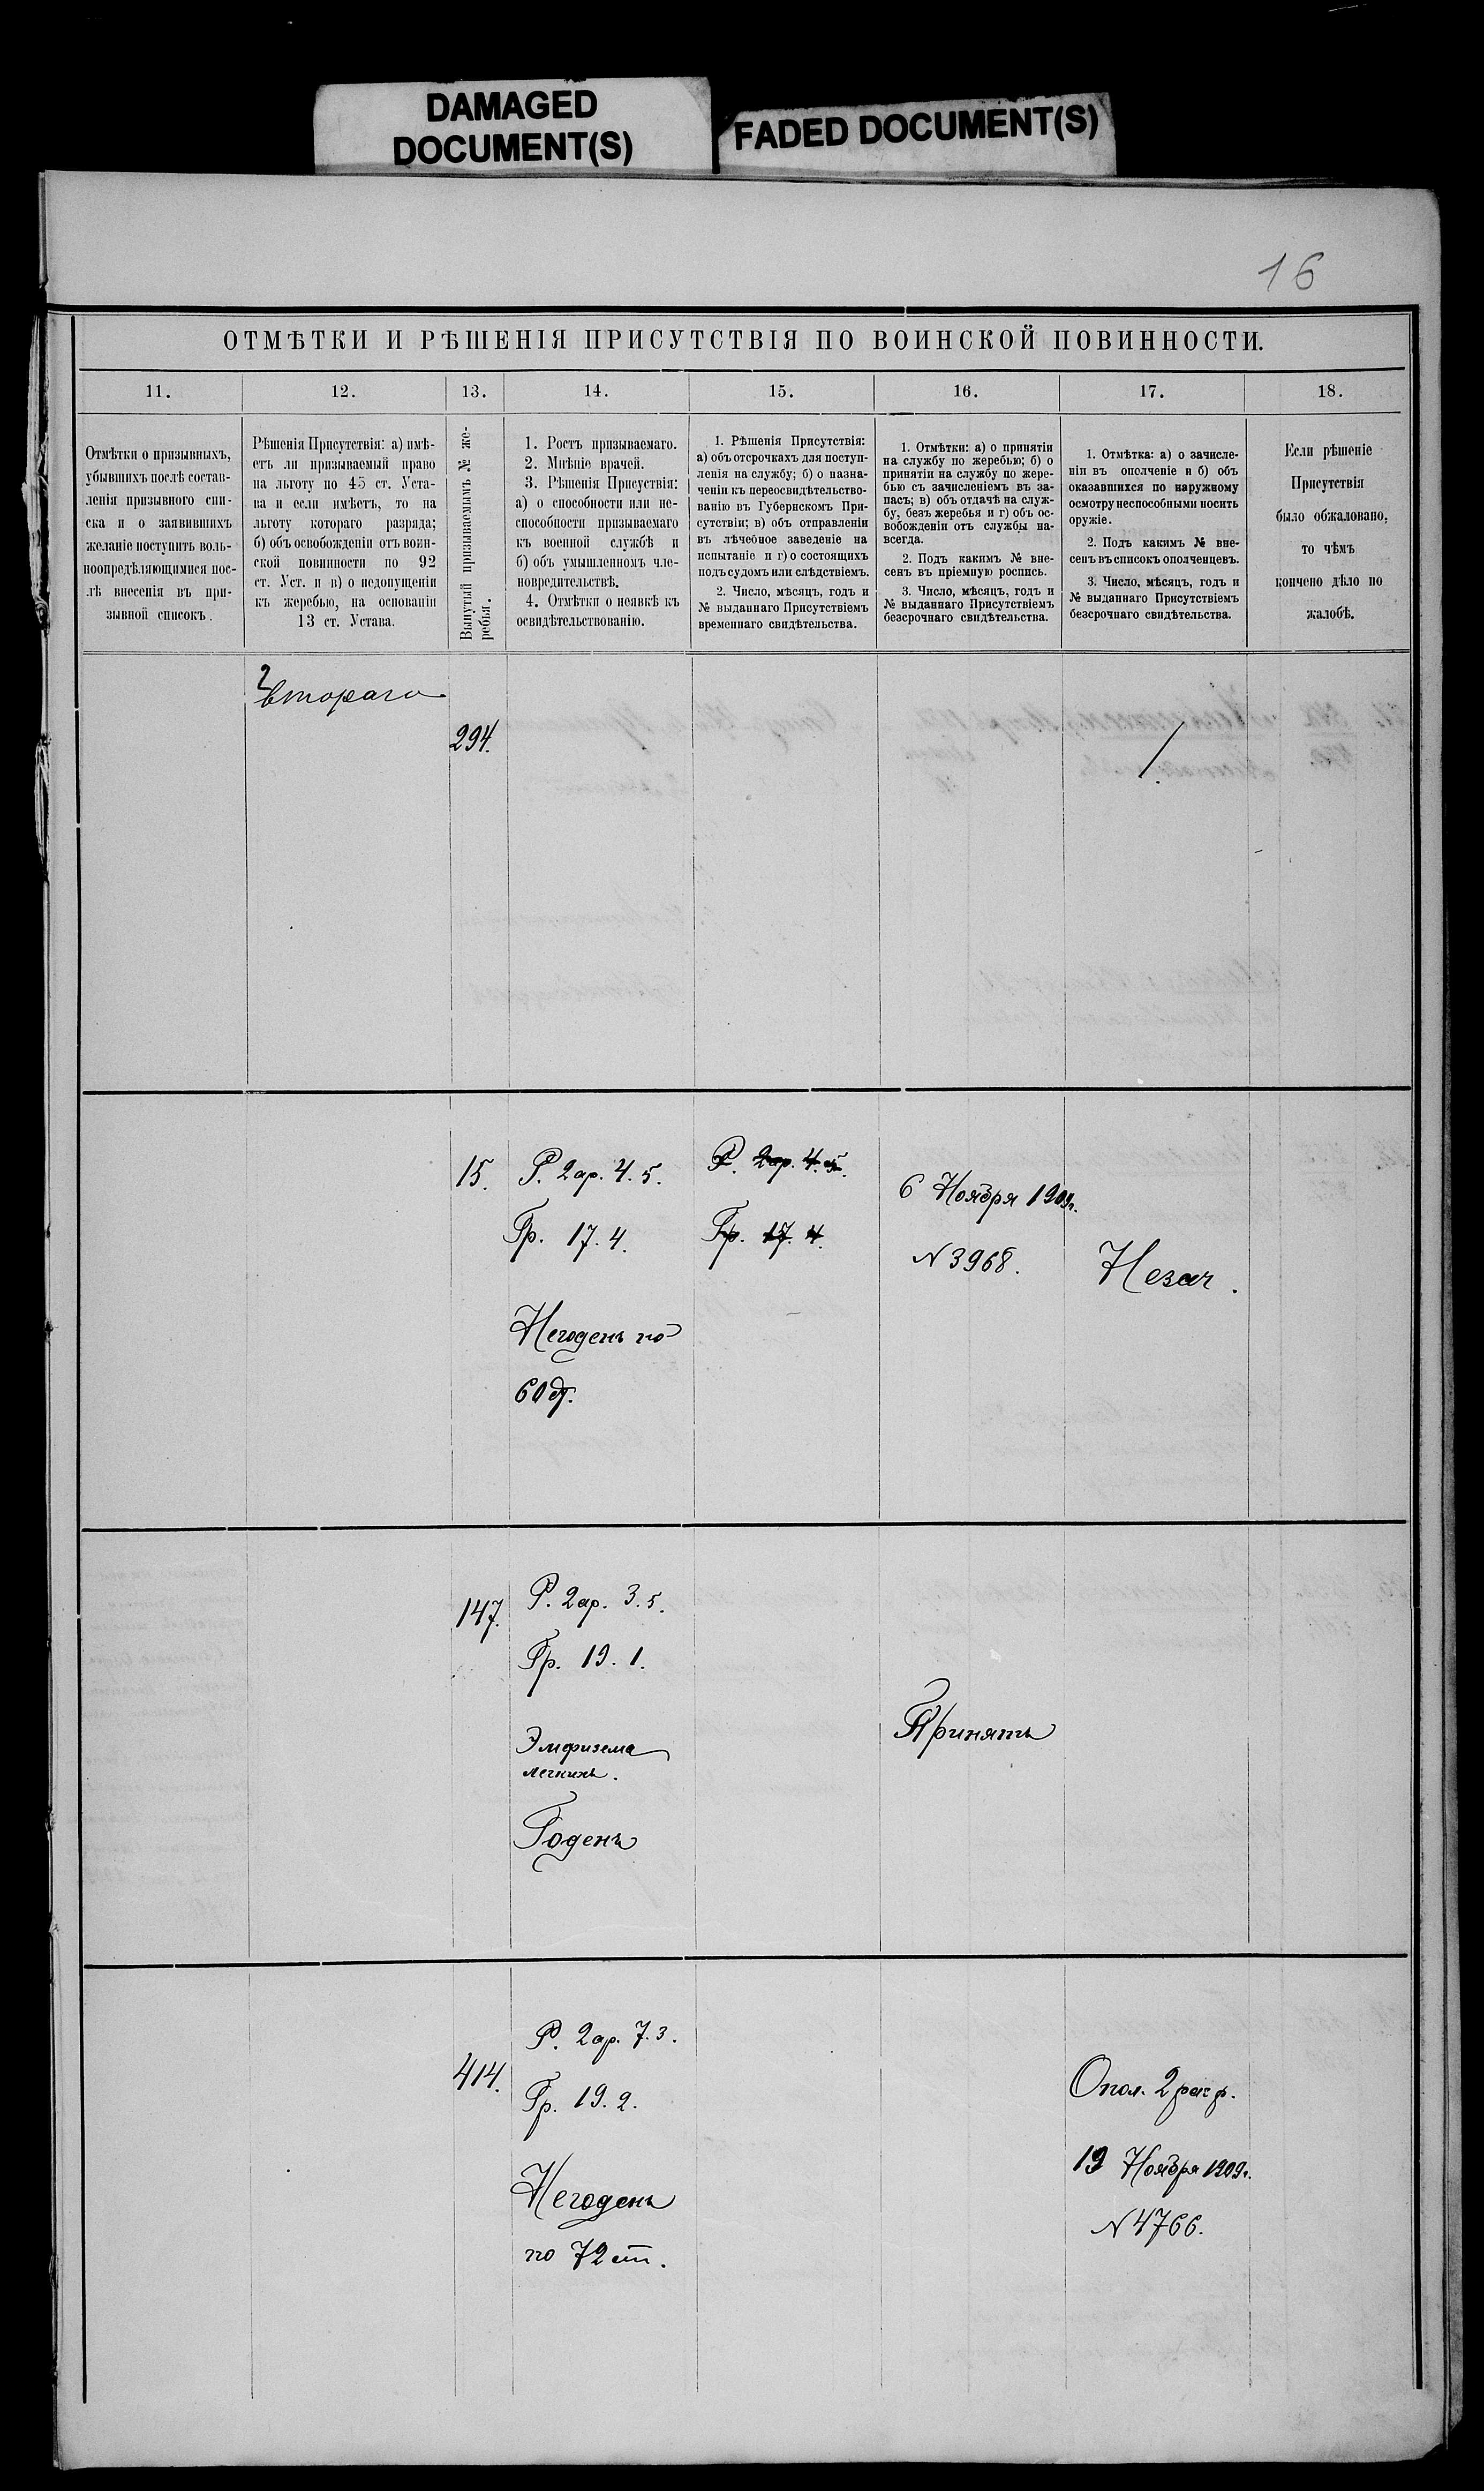 DAMAGED
DOCUMENT(S)
FADED DOCUMENT(S)
16
ОТМѢТКИ И РѢШЕНІЯ ПРИСУТСТВІЯ ПО ВОИНСКОЙ ПОВИННОСТИ.
11.
12.
13.
14.
15.
16.
17.
18.
Отмѣтки о призывныхъ,
убывшихъ послѣ состав-
ленія призывного спи-
ска и о заявившихъ
желаніе поступить воль-
ноопредѣляющимися пос-
лѣ внесенія въ при-
зывной списокъ.
Рѣшенія Присутствія: а) имѣ-
етъ ли призываемый право
на льготу по 45 ст. Уста-
ва и если имѣетъ, то на
льготу котораго разряда;
б) объ освобожденіи отъ воин-
ской повинности по 92
ст. Уст. и в) о недопущеніи
къ жеребью, на основаніи
13 ст. Устава.
Вынутый призываемымъ № же-
ребья.
1. Ростъ призываемаго.
2. Мнѣніе врачей.
3. Рѣшенія Присуствія:
а) о способности или не-
способности призываемаго
къ военной службѣ и
б) объ умышленномъ чле-
новредительствѣ.
4. Отмѣтки о неявкѣ къ
освидѣтельствованію.
1. Рѣшенія Присутствія:
а) объ отсрочкахъ для поступ-
ленія на службу; б) о назна-
ченіи къ переосвидѣтельство-
ванію въ Губернскомъ При-
сутствіи; в) объ отправленіи
въ лѣчебное заведеніе на
испытаніе и г) о состоящихъ
подъ судомъ или слѣдствіемъ.
2. Число, мѣсяцъ, годъ и
№ выданнаго Присутствіемъ
временнаго свидѣтельства.
1. Отмѣтки: а) о принятіи
на службу по жеребью; б) о
принятіи на службу по жере-
бью съ зачисленіемъ въ за-
пасъ; в) объ отдачѣ на служ-
бу, безъ жеребья и г) объ ос-
вобожденіи отъ службы на-
всегда.
2. Подъ какимъ № вне-
сенъ въ пріемную роспись.
3. Число, мѣсяцъ, годъ и
№ выданнаго Присутствіемъ
безсрочнаго свидѣтельства.
1. Отмѣтка: а) о зачисле-
ніи въ ополченіе и б) объ
оказавшихся по наружному
осмотру неспособными носить
оружіе.
2. Подъ какимъ № вне-
сенъ въ списокъ ополченцевъ.
3. Число, мѣсяцъ, годъ и
№ выданнаго Присутствіемъ
безсрочнаго свидѣтельства.
Если рѣшеніе
Присутствія
было обжаловано,
то чѣмъ
кончено дѣло по
жалобѣ.
2
втораго
294.
15.
Р. 2ар. 4. 5.
Гр. 17. 4.
Негоденъ по
60 ст.
Р. 2ар. 4. 5.
Гр. 17. 4.
6 Ноября 1909г.
N 3968.
Незач.
147.
Р. 2ар. 3. 5.
Гр. 19. 1.
Эмфизема
легкихъ.
Годенъ
Принятъ
414.
Р. 2ар. 7. 3.
Гр. 19. 2.
Негоденъ
по 72 ст.
Опол. 2 разр.
19 Ноября 1909г.
N 4766.